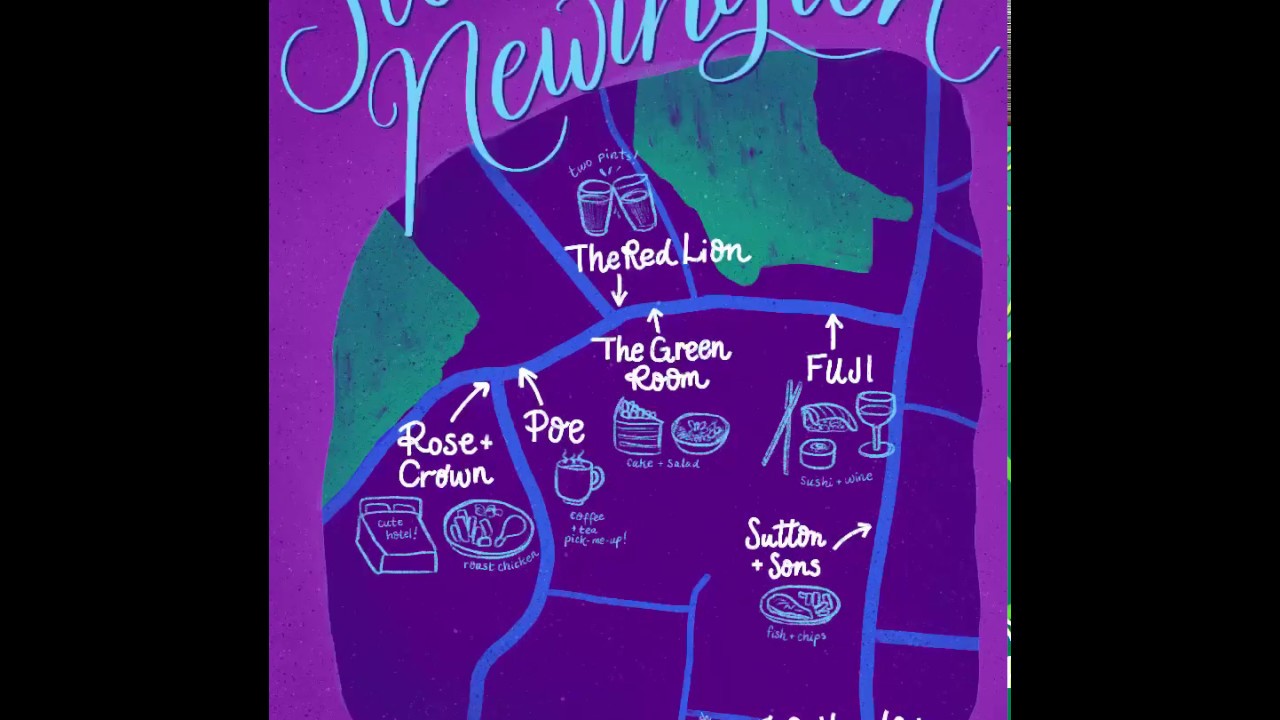 Newington
two pints!
The Red Lion
The Green
Room
cake + salad
FUJI
sushi + wine
Poe
coffee
+ tea
pick-me-up!
Rose +
Crown
cute
hotel!
roast chicken
Sutton
+ Sons
fish + chips